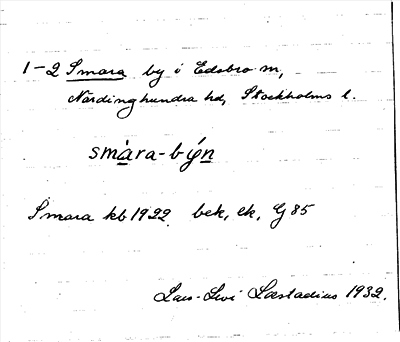 1-2 Smara by i Edsbro sn,
Närdinghundra hd, Stockholms l.
smàra-býn
Smara kb 1922. bek, ek, G 85
Lars-Levi Læstadius 1932.